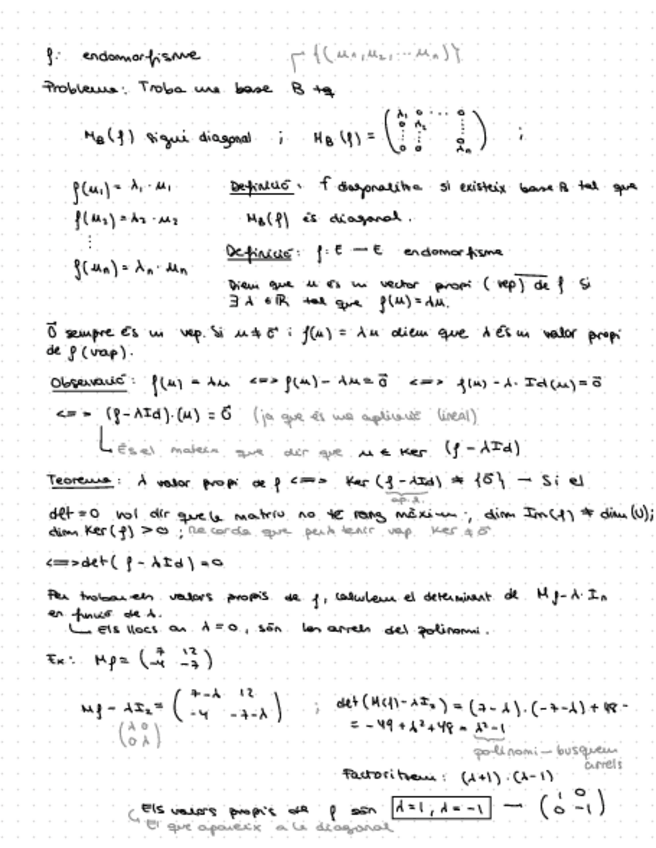 f: endomorfisme {(u₁,u₂,...uₙ)}
Problema: Troba una base B tq
M_B(f) sigui diagonal ; M_B(f) = (λ₁ 0 ... 0
0 λ₂
⋮ ⋮ ⋮
0 0 λₙ) ;
f(u₁) = λ₁·u₁ Definició: f diagonalitza si existeix base B tal que
f(u₂) = λ₂·u₂ M_B(f) és diagonal.
⋮ Definició: f: E → E endomorfisme
f(uₙ) = λₙ·uₙ
Diem que u és un vector propi (vep) de f si
∃ λ ∈ ℝ tal que f(u) = λu.
0⃗ sempre és un vep. Si u ≠ 0⃗ i f(u) = λu diem que λ és un valor propi
de f (vap).
Observació: f(u) = λu <=> f(u) - λu = 0⃗ <=> f(u) - λ·Id(u) = 0⃗
<=> (f - λId)·(u) = 0⃗ (ja que és una aplicació lineal)
És el mateix que dir que u ∈ Ker (f - λId)
Teorema: λ valor propi de f <=> Ker (f - λId) ≠ {0⃗} → Si el
ap.l.
det = 0 vol dir que la matriu no té rang màxim; dim Im(f) ≠ dim(U);
dim Ker(f) > 0; Recorda que per tenir vap Ker ≠ 0⃗
<=> det(f - λId) = 0
Per trobar els valors propis de f, calculem el determinant de Mf - λ·Iₙ
en funció de λ.
Els llocs on λ = 0, són les arrels del polinomi.
Ex: Mf = (7 12
-4 -7)
Mf - λI₂ = (7-λ 12
-4 -7-λ) ; det(M(f) - λI₂) = (7-λ)·(-7-λ) + 48 =
(λ 0
0 λ) = -49 + λ² + 48 = λ² - 1
polinomi → busquem
arrels
Factoritzem: (λ+1)·(λ-1)
Els valors propis de f són λ = 1; λ = -1 → (1 0
0 -1)
El que apareix a la diagonal